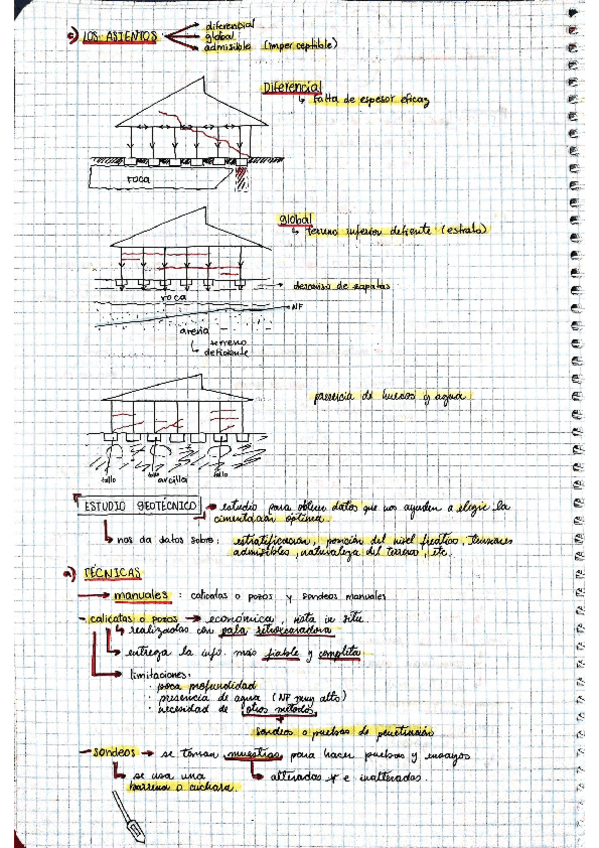 c) LOS ASIENTOS
diferencial
global
admisible (imperceptible)
Diferencial
falta de espesor eficaz
roca
global
terreno inferior deficiente (estrato)
descanso de zapatas
roca
NF
arena
terreno deficiente
presencia de huecos y agua
tallo
tallo
arcilla
tallo
ESTUDIO GEOTÉCNICO
estudio para obtener datos que nos ayuden a elegir la
cimentación óptima.
nos da datos sobre: estratificación, posición del nivel freático, tensiones
admisibles, naturaleza del terreno, etc.
a) TÉCNICAS
manuales : calicatas o pozos y sondeos manuales
- calicatas o pozos → económica, vista in situ.
realizadas con pala retroexcavadora
entrega la info. más fiable y completa
limitaciones:
· poca profundidad
· presencia de agua (NF muy alto)
· necesidad de otros métodos
sondeos o pruebas de penetración
- sondeos → se toman muestras para hacer pruebas y ensayos
se usa una
barrena o cuchara.
alteradas e inalteradas.